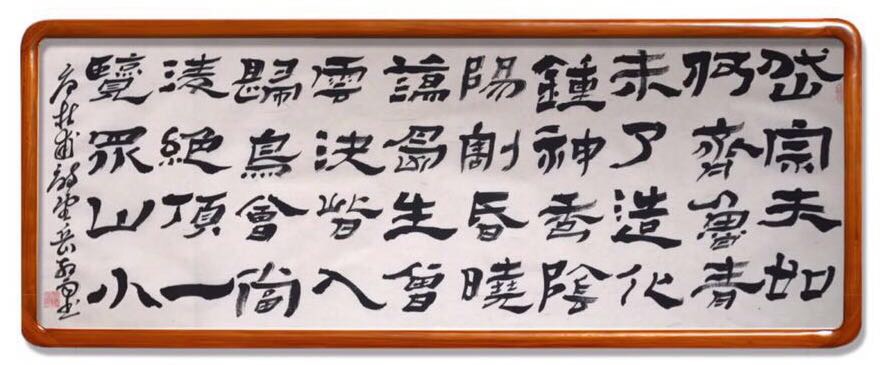 岱宗夫如
何齊魯青
未了造化
鍾神秀陰
陽割昏曉
蕩胷生曾
雲決眥入
歸鳥會當
淩絕頂一
覽眾山小
唐杜甫詩望岳